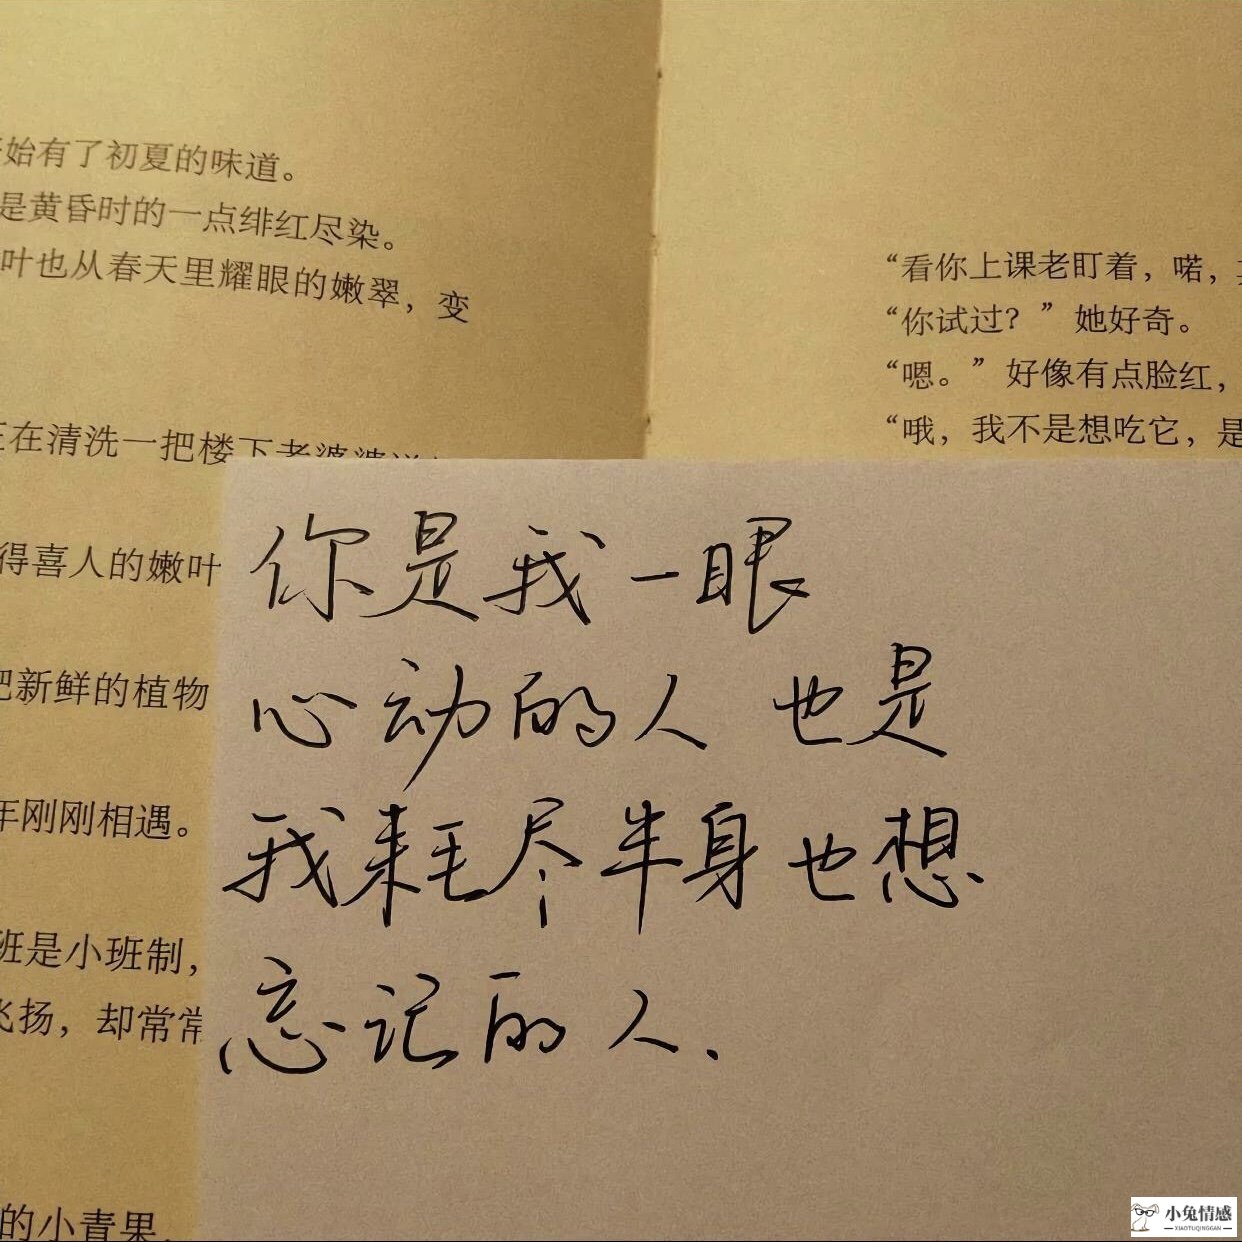 始有了初夏的味道。
是黄昏时的一点绯红尽染。
叶也从春天里耀眼的嫩翠，变
在清洗一把楼下老婆婆送
得喜人的嫩叶
把新鲜的植物
年刚刚相遇。
班是小班制，
飞扬，却常常
的小青果，
“看你上课老盯着，喏，
“你试过？”她好奇。
“嗯。”好像有点脸红，
“哦，我不是想吃它，是
你是我一眼
心动的人 也是
我耗尽半身也想
忘记的人.
小兔情感
XIAOTUQINGGAN